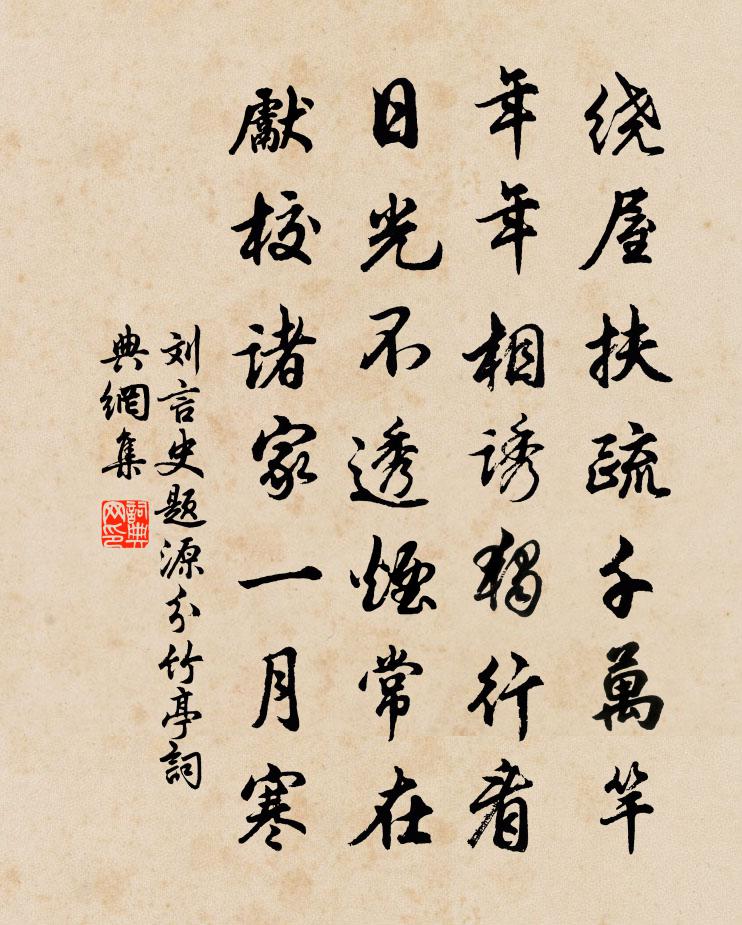 绕屋扶疏千萬竿
年年相誘獨行看
日光不透煙常在
獻校諸家一月寒
刘言史题源分竹亭詞
典網集
詞典
网印